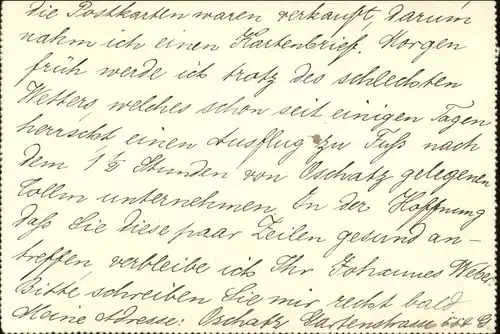 die Postkarten waren verkauft, darum
nahm ich einen Kartenbrief. Morgen
früh werde ich trotz des schlechten
Wetters, welches schon seit einigen Tagen
herrscht einen Ausflug zu Fuß nach
dem 1½ Stunden von Oschatz gelegenen
Collm unternehmen. In der Hoffnung
daß Sie diese paar Zeilen gesund an-
treffen, verbleibe ich Ihr Johannes Weber.
Bitte, schreiben Sie mir recht bald
Meine Adresse: Oschatz